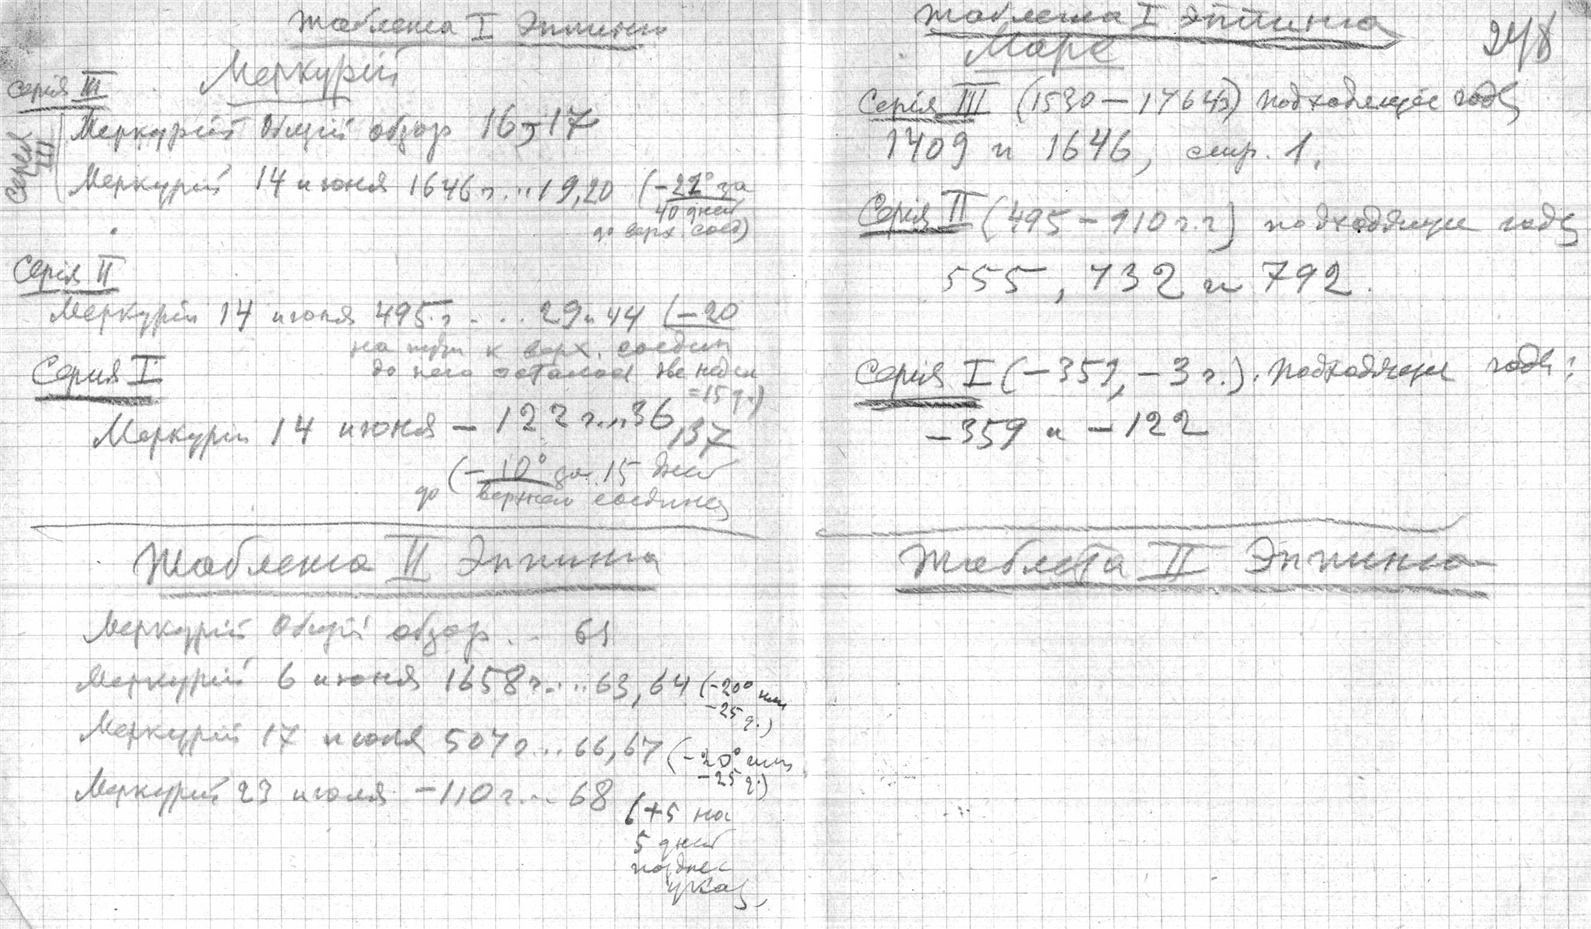 Таблетка I Эппинга
Меркурій
Серія III
Серія III
Меркурій Общій обзор 16, 17
Меркурій 14 июня 1646 г... 19, 20 (–22° за
40 дней
до верх. соед)
Серія II
Меркурій 14 июня 495 г.... 29 и 44 (–20
на пути к верх. соедин
до него осталось две недел
=15 д.)
Серия I
Меркурій 14 июня –122 г... 36, 37
(–10° за 15 дней
до верхнего соединен
Таблетка II Эппинга
Меркурій Общій обзор... 61
Меркурій 6 июня 1658 г.... 63, 64 (–20° или
–25 д.)
Меркурій 17 июня 507 г... 66, 67 (–20° или
–25 д.)
Меркурій 23 июля –110 г... 68
(+5 на
5 дней
позднее
указ,
Таблетка I Эппинга
248
Марс
Серія III (1530–1764 г) подходящіе годы
1409 и 1646, стр. 1.
Серія II (495–910 г.г) подходящие годы
555, 732 и 792.
Серія I (–359, –3 г.). подходящие годы:
–359 и –122
Таблета II Эппинга